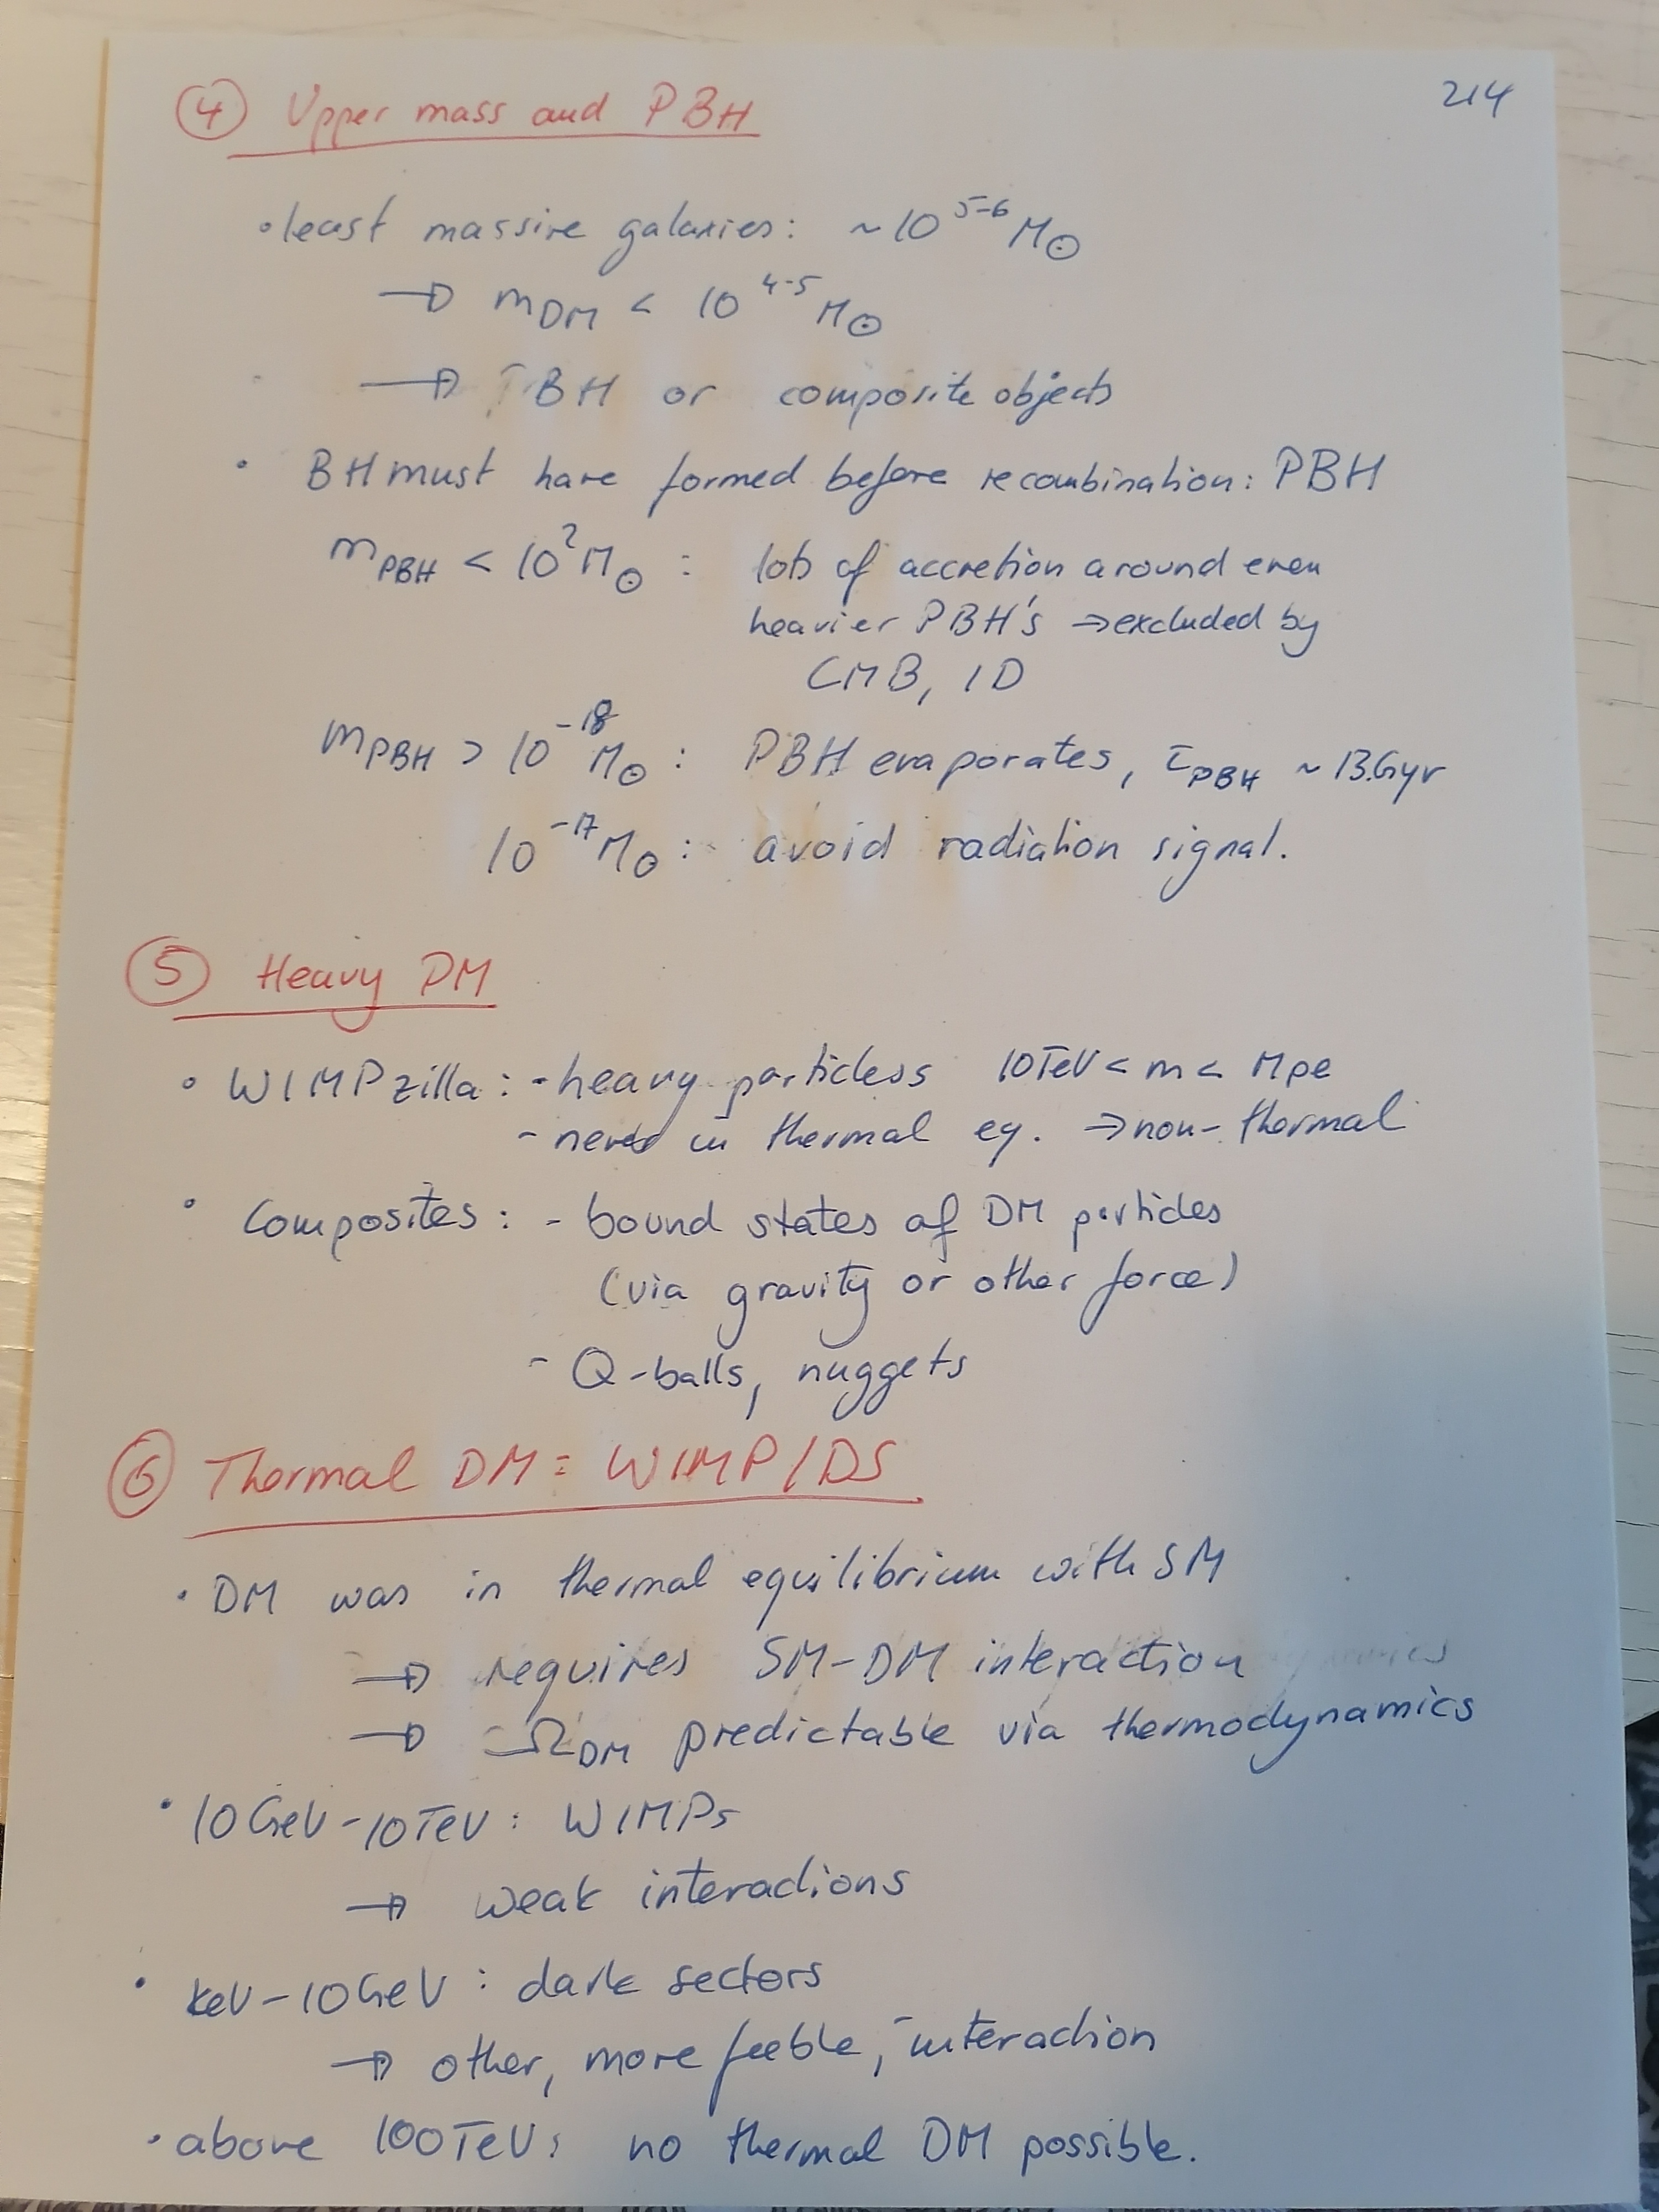 ④ Upper mass and PBH
214
• least massive galaxies: ~10^5-6 M⊙
→ m_DM < 10^4-5 M⊙
→ BH or composite objects
• BH must have formed before recombination: PBH
m_PBH < 10^2 M⊙ : lots of accretion around even
heavier PBH's ⇒ excluded by
CMB, ID
m_PBH > 10^-18 M⊙ : PBH evaporates, τ_PBH ~ 13Gyr
10^-17 M⊙ : avoid radiation signal.
⑤ Heavy DM
• WIMPzilla : - heavy particless 10TeV < m < M_pl
- never in thermal eq. ⇒ non-thermal
• Composites : - bound states of DM particles
(via gravity or other force)
- Q-balls, nuggets
⑥ Thermal DM = WIMP/DS
• DM was in thermal equilibrium with SM
→ requires SM-DM interaction
→ Ω_DM predictable via thermodynamics
• 10GeV-10TeV : WIMPs
→ weak interactions
• keV-10GeV : dark sectors
→ other, more feeble, interaction
• above 100TeV: no thermal DM possible.